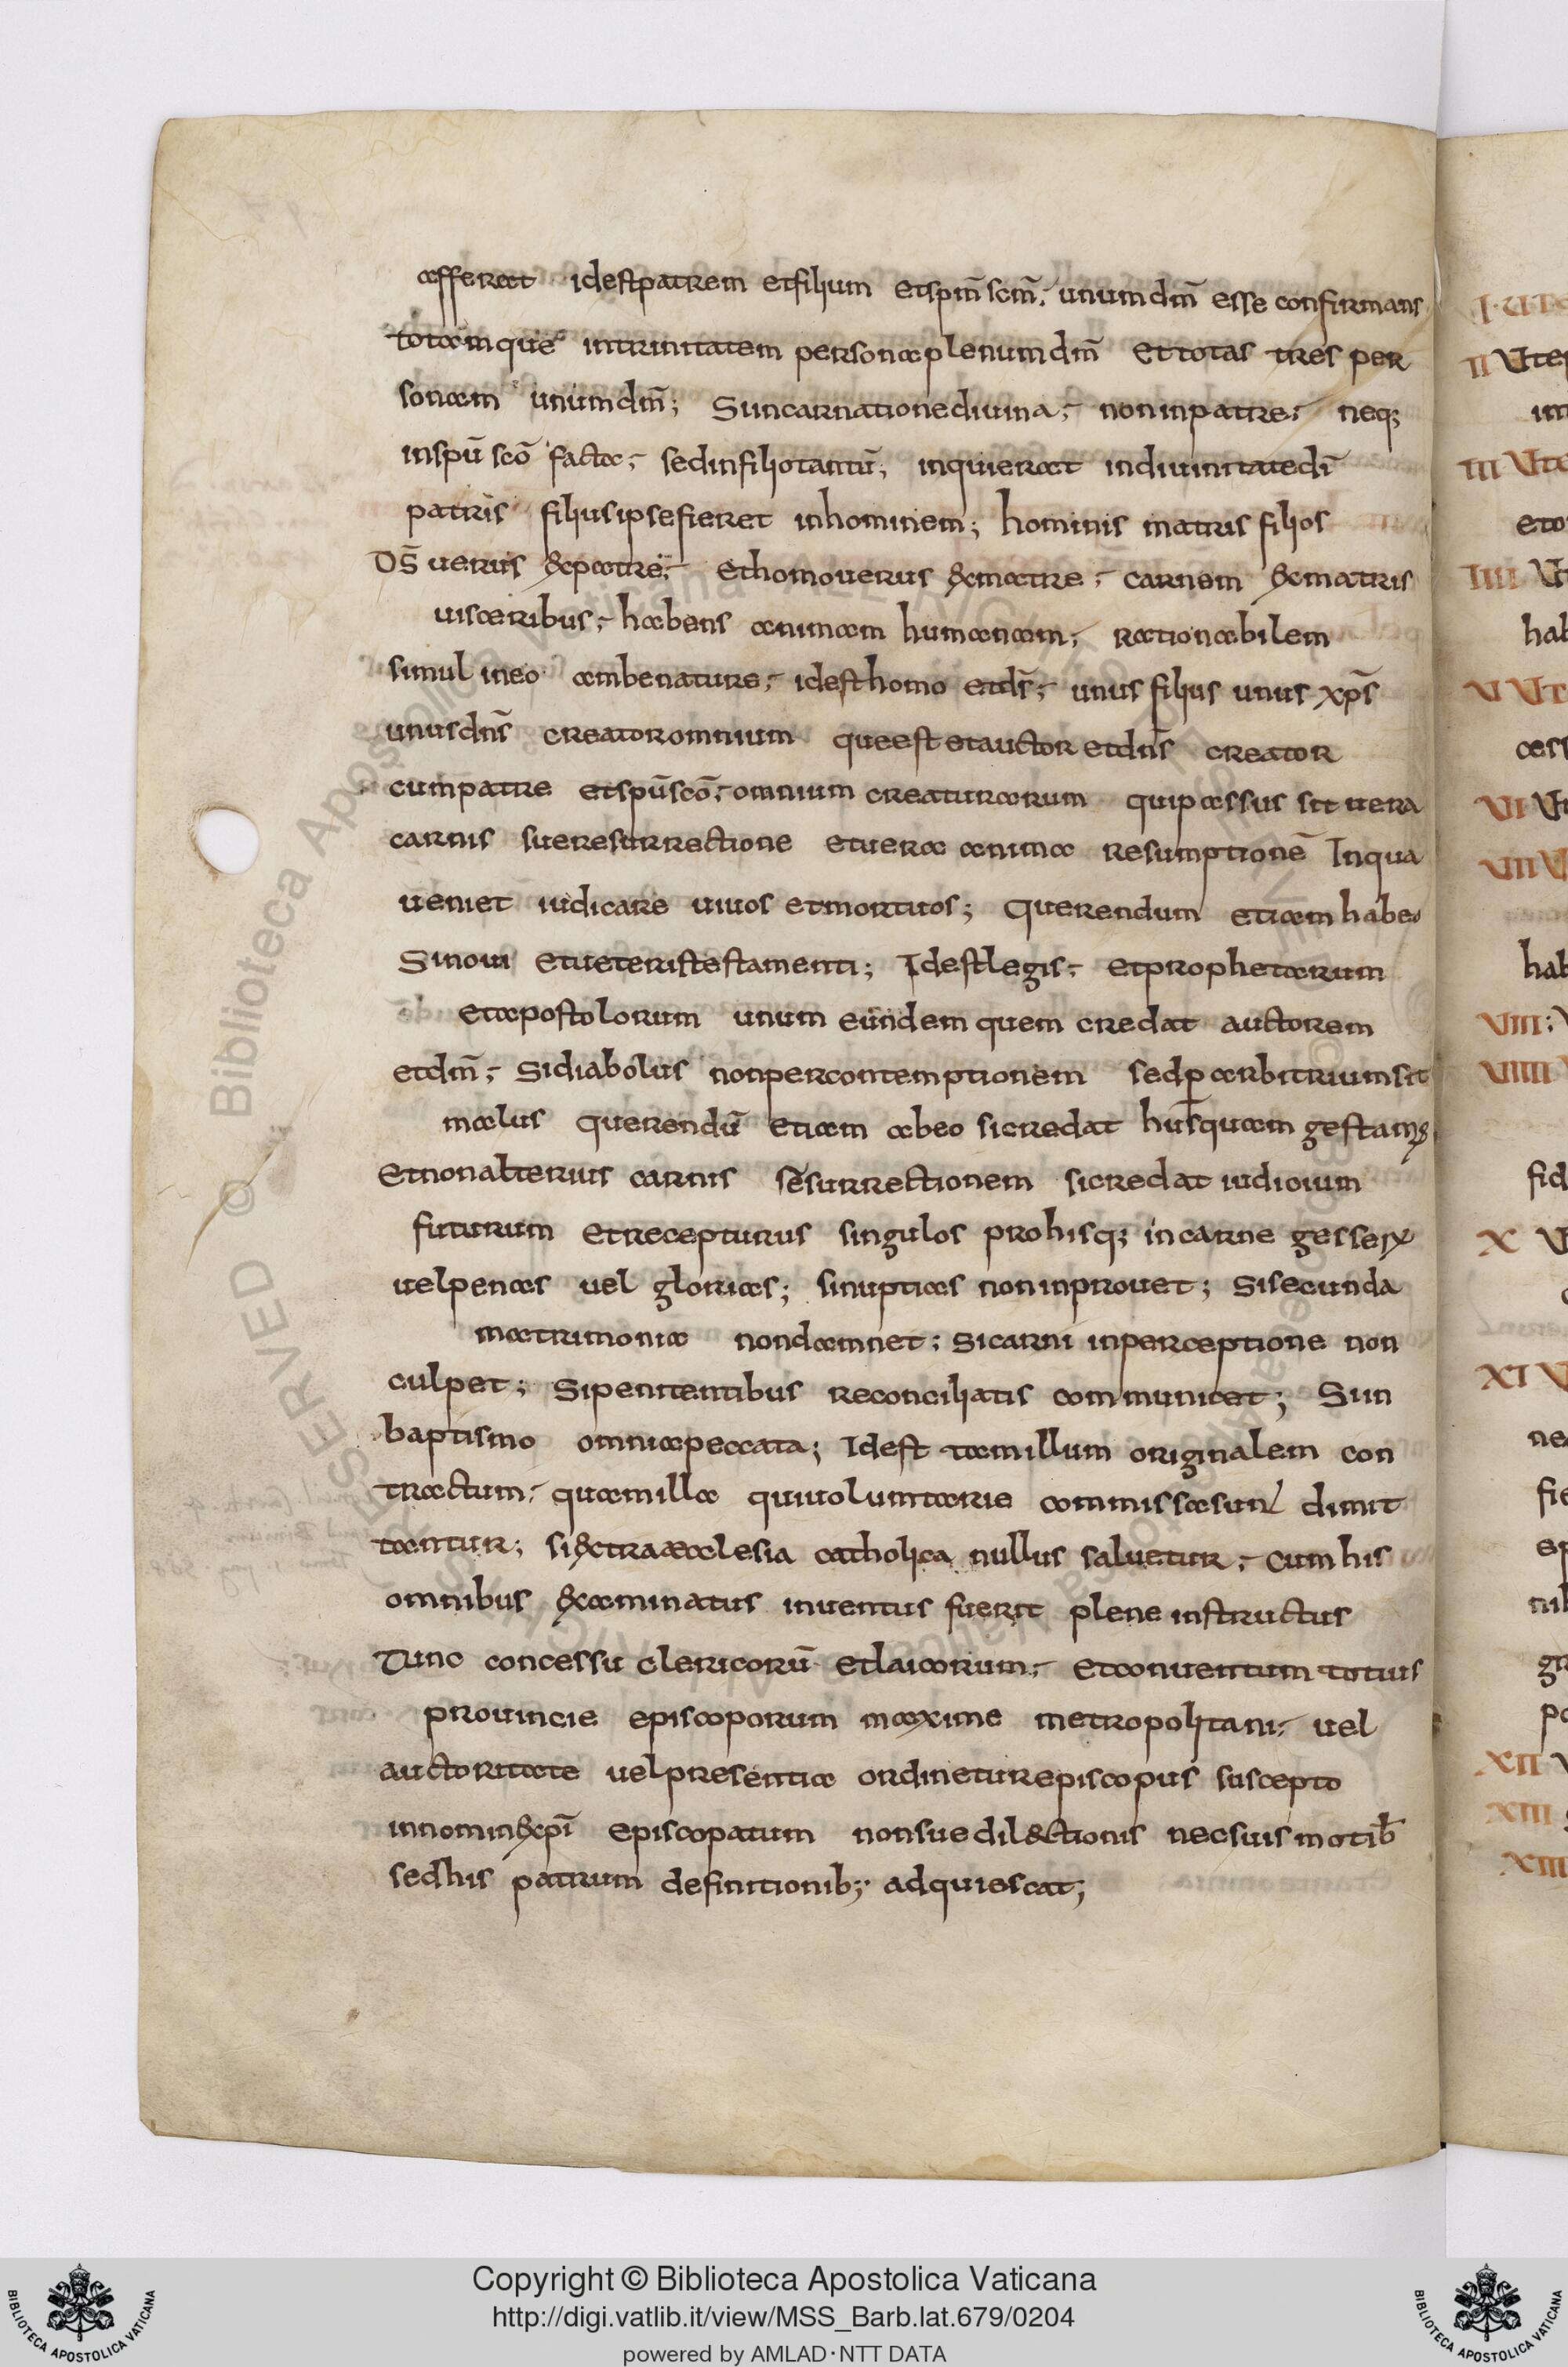 afferat idestpatrem etfilium etspm̄ scm̄; unumdm̄ esse confirmans
totamque intrinitatem personaplenumdm̄ et totas tres per
sonam unumdm̄; Siincarnationediuina; noninpatre; neq;
inspū scō facta; sedinfiliotantū; inquierat indiuinitatedī
patris filiusipsefieret inhominem; hominis matris filios
Ds̄ uerus expatre; ethomouerus exmatre; carnem exmatris
uisceribus; habens animam humanam; rationabilem
simul ineo ambenature; idesthomo etds̄; unus filius unus xps̄
unusdns̄ creatoromnium queest etauctor etdns̄ creator
cumpatre etspūscō; omnium creaturarum quipassus sit uera
carnis sueresurrectione etuera anima resumptionē Inqua
ueniet iudicare uiuos etmortuos; Querendum etiam habeo
Sinoui etueteristestamenti; Idestlegis; etprophetarum
etapostolorum unum eundem quem credat auctorem
etdm̄; Sidiabolus nonpercontemptionem sedp̱arbitriumsit
malus querendū etiam abeo sicredat huīsquam gestamꝰ
Etnonalterius carnis sēsurrectionem sicredat iudicium
futurum etrecepturus singulos prohisq; incarne gesserx
uelpenas uel glorias; sinuptias noninprouet; Sisecunda
matrimonia nondamnet; Sicarni inperceptione non
culpet; Sipenitentibus reconciliatis communicet; Siin
baptismo omniapeccata; Idest tamillum originalem con
tractum; quamilla quiuoluntarie commissasunt dimit
tantur; siextraaecclesia catholica nullus saluetur; Cumhis
omnibus examinatus inuentus fuerit plene instructus
Tunc concessu clericorū etlaicorum; etconuentum totius
prouincie episcoporum maxime metropolitani; uel
auctoritate uelpresentia ordineturepiscopus suscepto
innominexpī episcopatum nonsuedil&ctionis necsuis motib̄
sedhis patrum definitionib; adquiescat;
I. Ut
II Ute
III Uta
eto
IIII Ut
hab
VI Ut
cess
VI Ut
VII U
hab
VIII;
VIIII
fid
X U
XI U
ne
fie
ep
nib
gr
po
XII
XIII
XIIII
Copyright © Biblioteca Apostolica Vaticana
http://digi.vatlib.it/view/MSS_Barb.lat.679/0204
powered by AMLAD·NTT DATA
BIBLIOTECA APOSTOLICA VATICANA
BIBLIOTECA APOSTOLICA VATICANA